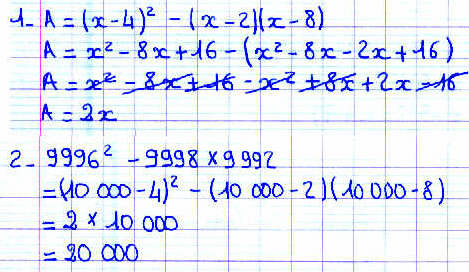 1- A = (x-4)² - (x-2)(x-8)
A = x² - 8x + 16 - (x² - 8x - 2x + 16)
A = x² - 8x + 16 - x² + 8x + 2x - 16
A = 2x
2- 9996² - 9998 × 9992
= (10 000 - 4)² - (10 000 - 2)(10 000 - 8)
= 2 × 10 000
= 20 000